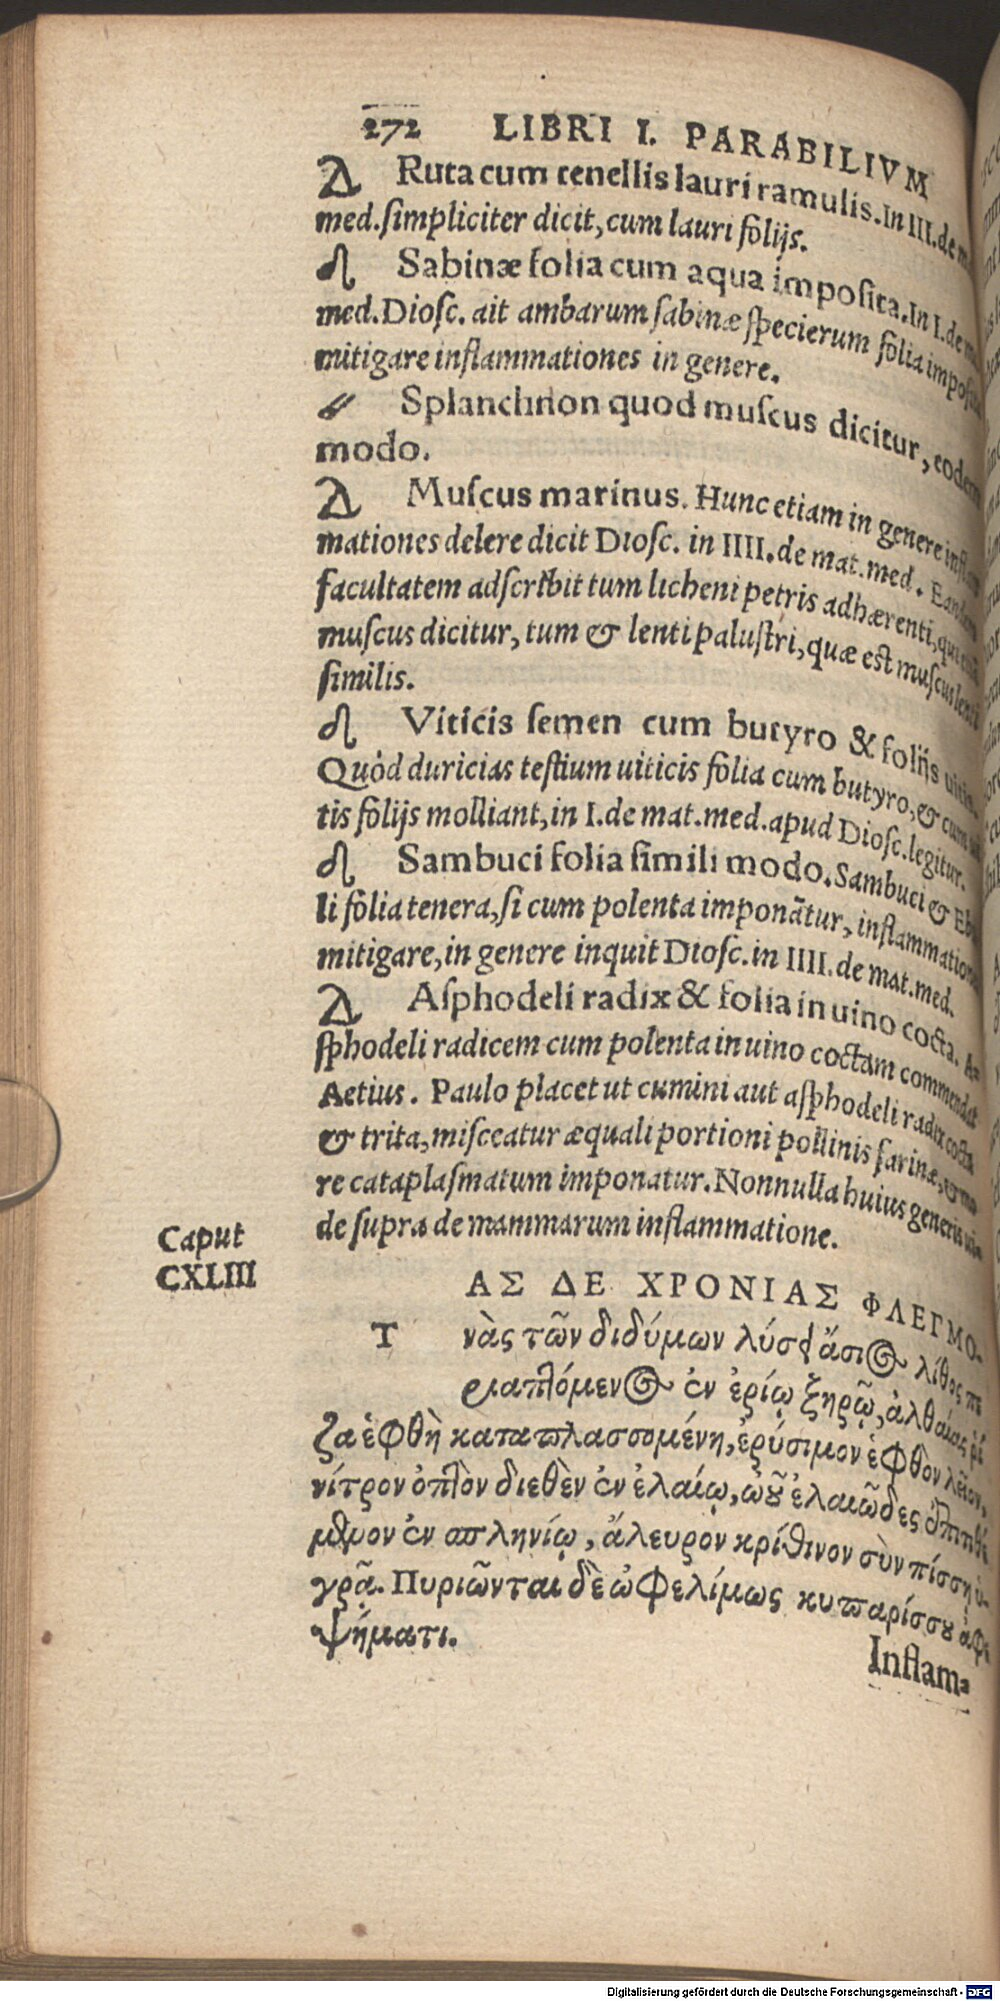 272 LIBRI I. PARABILIVM
Ruta cum tenellis lauri ramulis. In III. de m
med. simpliciter dicit, cum lauri folijs.
Sabinæ folia cum aqua imposita. In I. de m
med. Diosc. ait ambarum sabinæ specierum folia imposita
mitigare inflammationes in genere.
Splanchnon quod muscus dicitur, eodem
modo.
Muscus marinus. Hunc etiam in genere inflam
mationes delere dicit Diosc. in IIII. de mat. med. Eandem
facultatem adscribit tum licheni petris adhærenti, qui
muscus dicitur, tum & lenti palustri, quæ est muscus lenti
similis.
Viticis semen cum butyro & folijs uitis.
Quòd duricias testium uiticis folia cum butyro, & cum ui
tis folijs molliant, in I. de mat. med. apud Diosc. legitur.
Sambuci folia simili modo. Sambuci & Ebu
li folia tenera, si cum polenta imponãtur, inflammationes
mitigare, in genere inquit Diosc. in IIII. de mat. med.
Asphodeli radix & folia in uino cocta. A=
sphodeli radicem cum polenta in uino coctam commendat
Aetius. Paulo placet ut cumini aut asphodeli radix cocta
& trita, misceatur æquali portioni pollinis farinæ, & mo
re cataplasmatum imponatur. Nonnulla huius generis ui=
de supra de mammarum inflammatione.
Caput
CXLIII
ΑΣ ΔΕ ΧΡΟΝΙΑΣ ΦΛΕΓΜΟ-
Τ νὰς τῶν διδύμων λύσει ἄσιος λίθος πε
ριαπτόμενος ἐν ἐρίῳ ξηρῷ, ἀλθαίας ῥί
ζα ἑφθὴ καταπλασσομένη, ἐρύσιμον ἑφθὸν λεῖον,
νίτρον ὀπτὸν διεθὲν ἐν ἐλαίῳ, ὠοῦ ἐλαιῶδες ἐπιτιθέ
μενον ἐν σπληνίῳ, ἄλευρον κρίθινον σὺν πίσσῃ ὑ-
γρᾷ. Πυριῶνται δὲ ὠφελίμως κυπαρίσσου ἀφε
ψήματι.
Inflam=
Digitalisierung gefördert durch die Deutsche Forschungsgemeinschaft - DFG